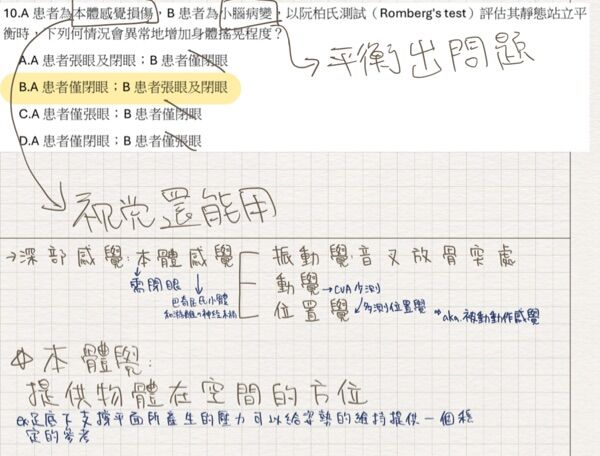 10.A 患者為本體感覺損傷，B 患者為小腦病變，以阮柏氏測試（Romberg's test）評估其靜態站立平
衡時，下列何情況會異常地增加身體搖晃程度？
A.A 患者張眼及閉眼；B 患者僅閉眼
B.A 患者僅閉眼；B 患者張眼及閉眼
C.A 患者僅張眼；B 患者僅閉眼
D.A 患者僅閉眼；B 患者僅張眼
平衡出問題
視覚還能用
→深部感覺:本體感覺
振動覺:音叉放骨突處
動覺→CVA多測
位置覺
多測位置覺
aka.被動動作感覺
需閉眼
巴希尼氏小體
和游離の神經末梢
本體覺:
提供物體在空間的方位
ex:足底下支撐平面所產生的壓力可以給姿勢的維持提供一個穩
定的參考